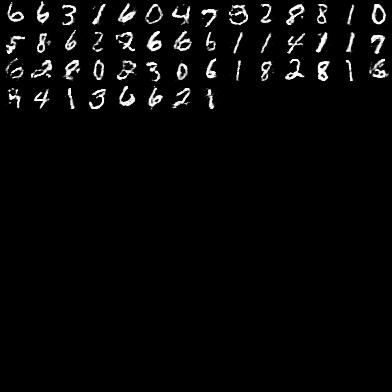 6 6 3 1 6 0 4 7 5 2 8 8 1 0
5 8 6 2 2 6 6 6 1 1 4 1 1 7
6 2 8 0 2 3 0 6 1 8 2 8 1 6
9 4 1 3 6 6 2 1